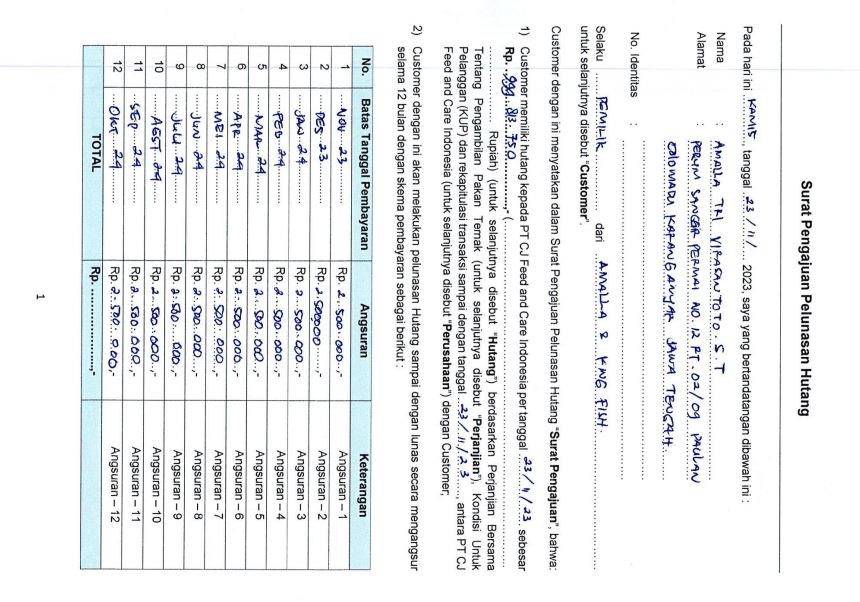 Surat Pengajuan Pelunasan Hutang
Pada hari ini KAMIS, tanggal 23/11/ 2023, saya yang bertandatangan dibawah ini :
Nama : AMALLA TRI VIRASANTOTO. S.T
Alamat : PERUM SANGGR PERMAI NO.12 RT.02/09 PAULAN
COLOMADU KARANGANYAR JAWA TENGAH.
No. Identitas :
Selaku PEMILIK dari AMALLA 2 KING FISH.
untuk selanjutnya disebut "Customer".
Customer dengan ini menyatakan dalam Surat Pengajuan Pelunasan Hutang "Surat Pengajuan", bahwa:
1) Customer memiliki hutang kepada PT CJ Feed and Care Indonesia per tanggal 23/11/23 sebesar
Rp. 999.813.750,- (
Rupiah) (untuk selanjutnya disebut "Hutang") berdasarkan Perjanjian Bersama
Tentang Pengambilan Pakan Ternak (untuk selanjutnya disebut "Perjanjian"), Kondisi Untuk
Pelanggan (KUP) dan rekapitulasi transaksi sampai dengan tanggal 23/11/23, antara PT CJ
Feed and Care Indonesia (untuk selanjutnya disebut "Perusahaan") dengan Customer;
2) Customer dengan ini akan melakukan pelunasan Hutang sampai dengan lunas secara mengangsur
selama 12 bulan dengan skema pembayaran sebagai berikut :
No. Batas Tanggal Pembayaran Angsuran Keterangan
1 NOV 23 Rp. 2.500.000,- Angsuran – 1
2 DES 23 Rp. 2.500000,- Angsuran – 2
3 JAN 24 Rp. 2.500.000,- Angsuran – 3
4 FEB 24 Rp. 2.500.000,- Angsuran – 4
5 MAR 24 Rp. 2.500.000,- Angsuran – 5
6 APR 24 Rp. 2.500.000,- Angsuran – 6
7 MEI 24 Rp. 2.500.000,- Angsuran – 7
8 JUN 24 Rp. 2.500.000,- Angsuran – 8
9 JULI 24 Rp. 2.500.000,- Angsuran – 9
10 AGST 24 Rp. 2.500.000,- Angsuran – 10
11 SEP 24 Rp. 2.500.000,- Angsuran – 11
12 OKT 24 Rp. 2.500.000,- Angsuran – 12
TOTAL Rp. ,-
1